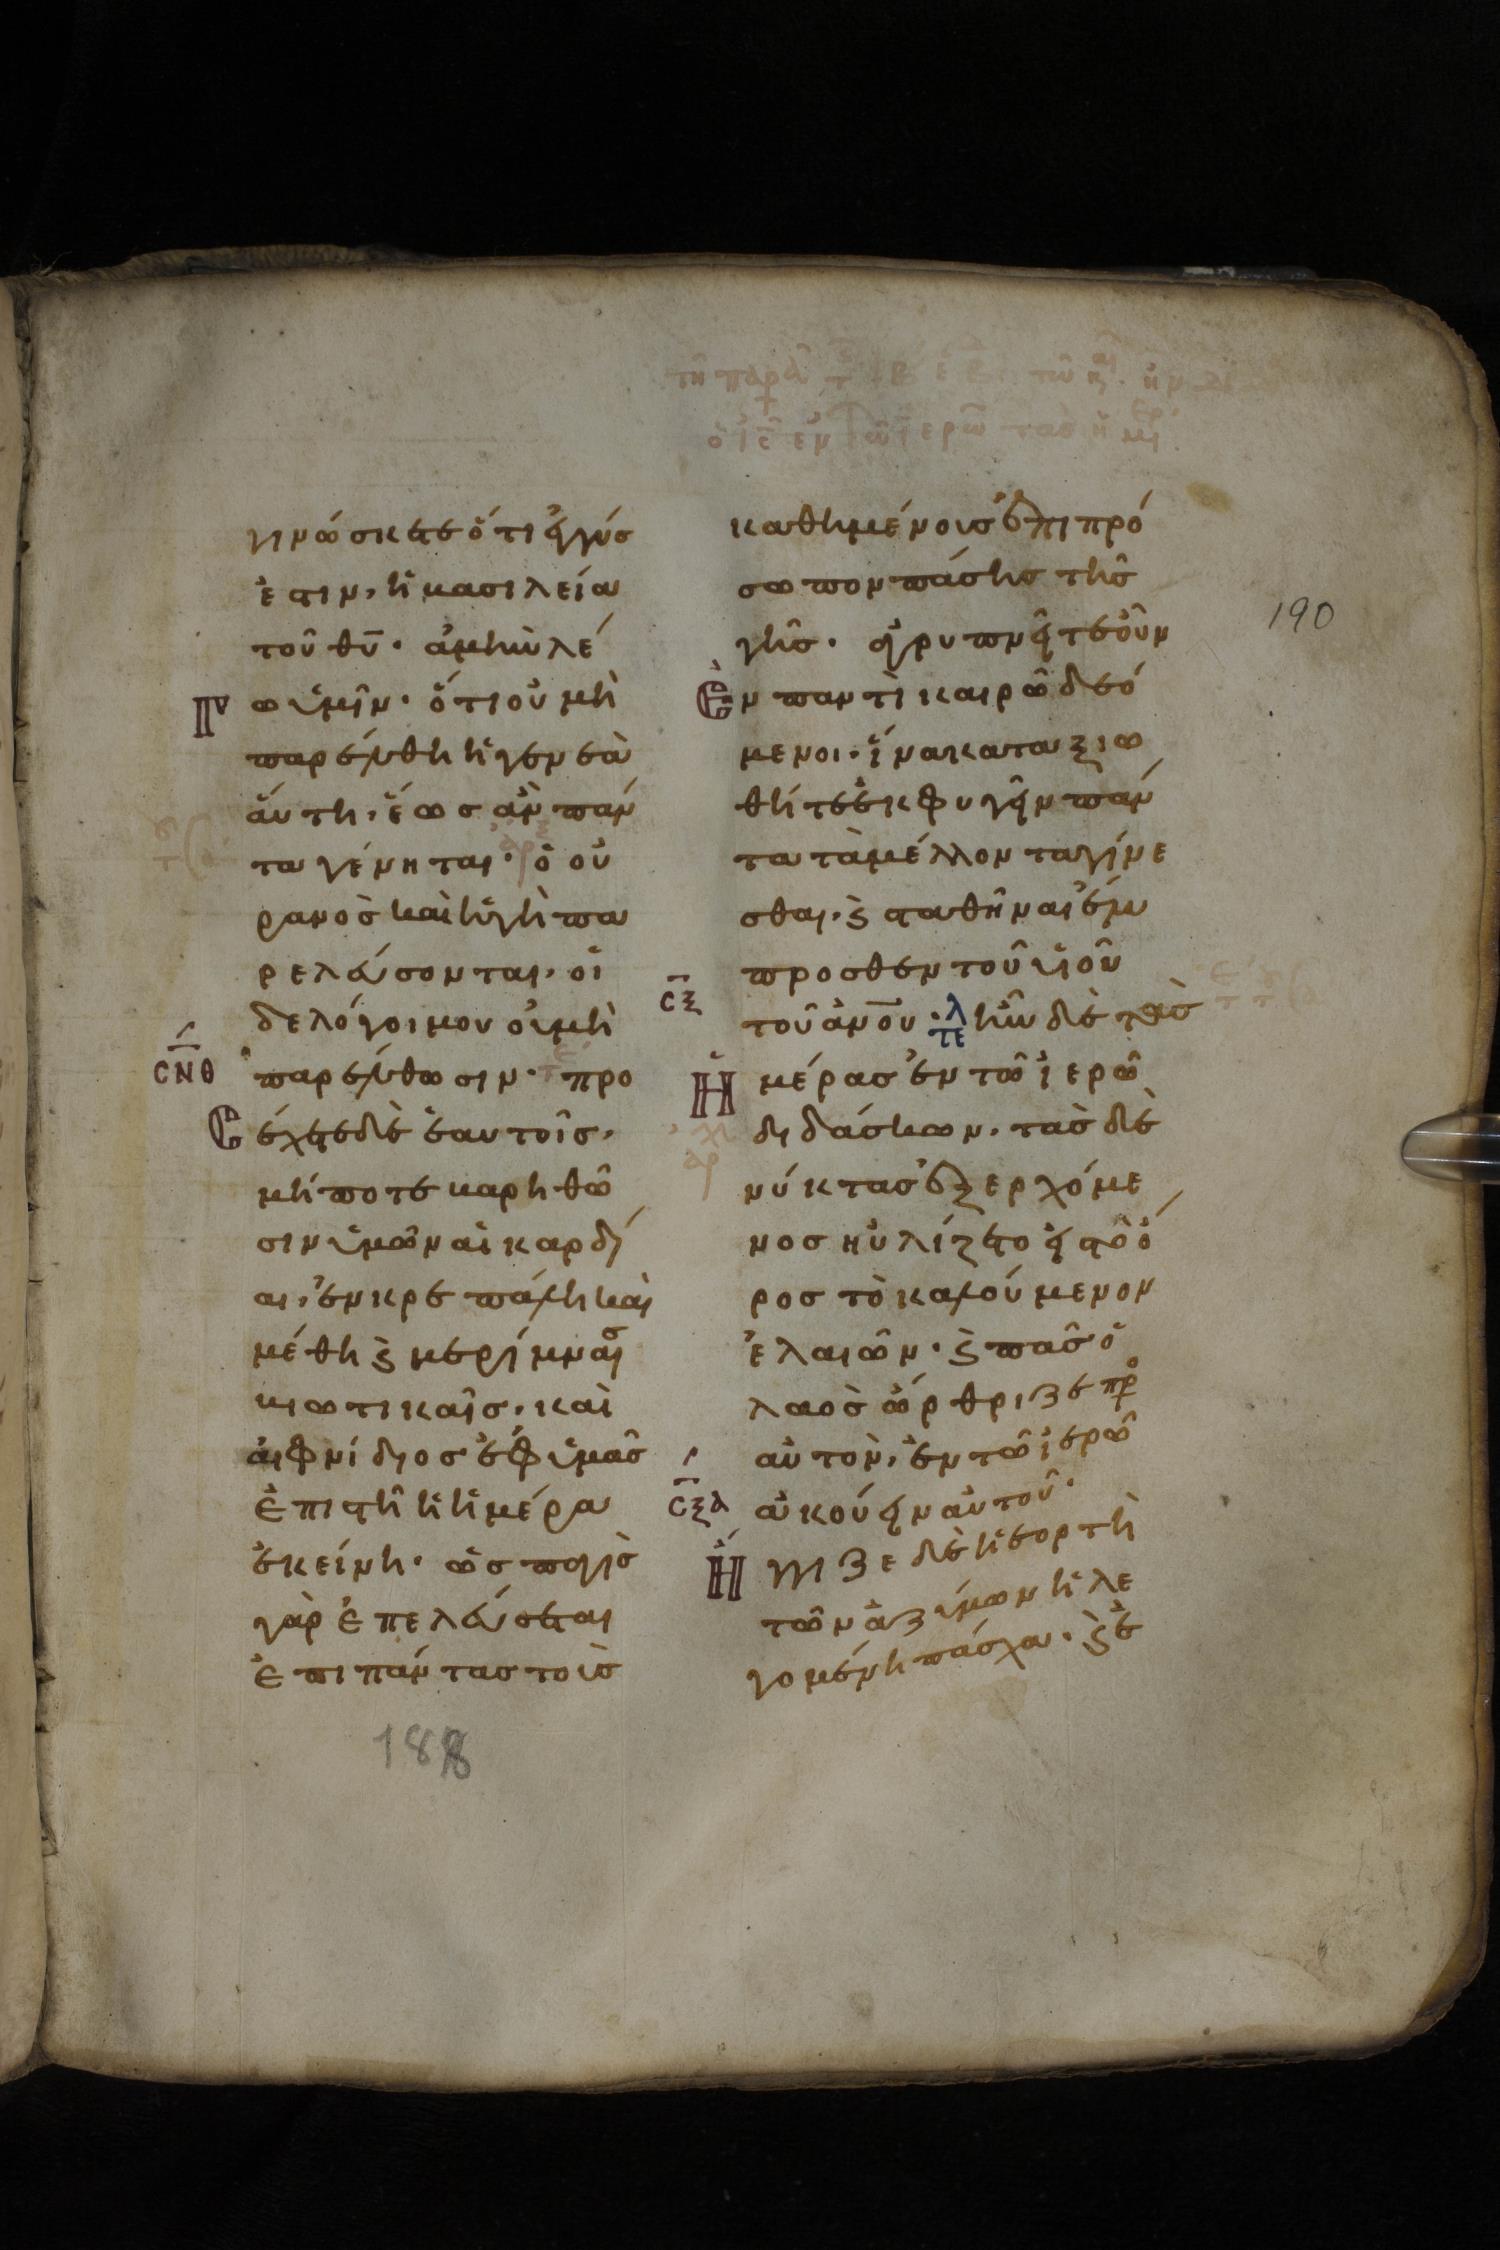 γινώσκετε ὅτι ἐγγύς
ἐστιν, ἡ βασιλεία
τοῦ θυ̅. ἀμὴν λέ
Γ ω ὑμῖν. ὅτι οὐ μὴ
παρέλθη ἡ γενεὰ
αὕτη, ἕως ἂν πάν
τα γένηται. ὁ οὐ
ρανὸς καὶ ἡ γῆ πα
ρελεύσονται, οἱ
δε λόγοι μου οὐ μὴ
ϹΝΘ
παρέλθωσιν. προ
Ε έχετε δὲ ἑαυτοῖς,
μήποτε βαρηθῶ
σιν ὑμῶν αἱ καρδί
αι, ἐν κρεπάλη καὶ
μέθη ϗ μερίμναις
βιωτικαῖς, καὶ
αἰφνίδιος ἐφ ὑμᾶς
ἐπιστῆ ἡ ἡμέρα
ἐκείνη. ὡς παγὶς
γὰρ ἐπελεύσεται
ἐπι πάντας τοὺς
188
καθημένους ἐπι πρό
σωπον πάσης τῆς
190
γῆς. ἀγρυπνεῖτε οὖν
Ἐν παντὶ καιρῶ δεό
μενοι. ἵνα καταξιω
θήτε ἐκφυγεῖν πάν
τα τὰ μέλλοντα γίνε
σθαι, ϗ σταθῆναι ἔμ
προσθεν τοῦ υἱοῦ
ϹΞ
τοῦ ἀν̅ου. τελ ἦν δὲ τὰς
Ἡ μέρας ἐν τῶ ἱερῶ
διδάσκων, τὰς δὲ
νύκτας ἐξερχόμε
νος ηὐλίζετο εἰς τὸ ὄ
ρος τὸ καλούμενον
ἐλαιῶν. ϗ πᾶς ὁ
λαὸς ὤρθριζε πρ
αὐτὸν, ἐν τῶ ἱερῶ
ϹΞΑ
ἀκούειν αὐτοῦ.
Ἤ γγιζε δὲ ἡ ἑορτὴ
τῶν ἀζύμων ἡ λε
γομένη πάσχα. ϗ ἐ